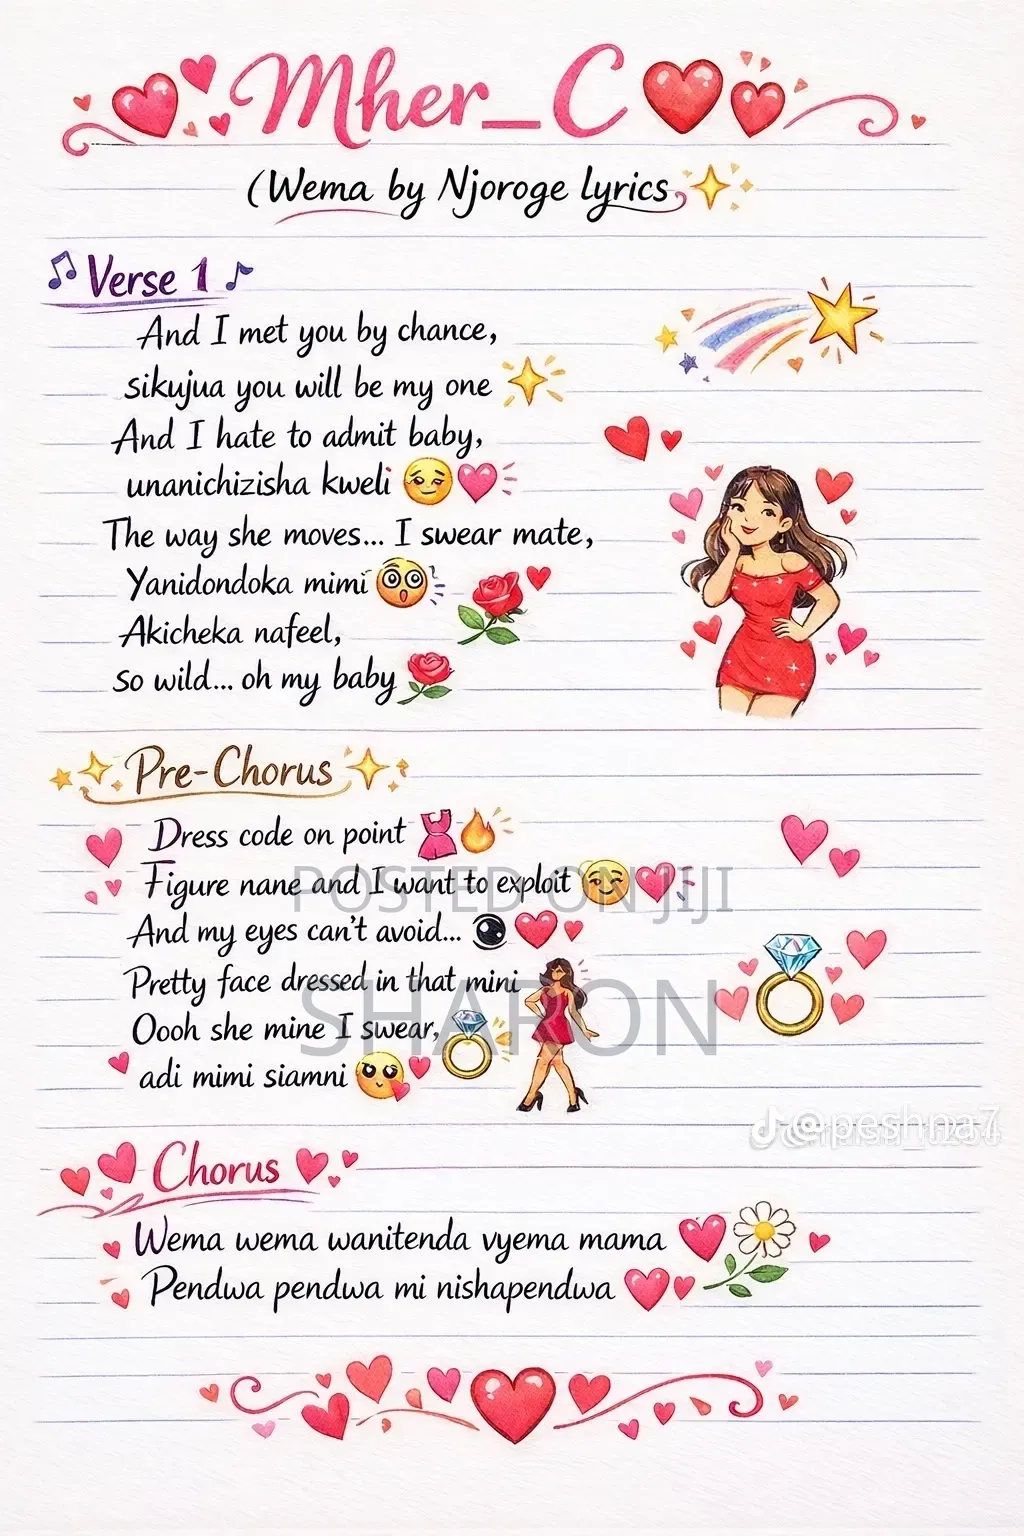 Mher_C
(Wema by Njoroge lyrics
Verse 1
And I met you by chance,
sikujua you will be my one
And I hate to admit baby,
unanichizisha kweli
The way she moves... I swear mate,
Yanidondoka mimi
Akicheka nafeel,
so wild... oh my baby
Pre-Chorus
Dress code on point
Figure nane and I want to exploit
POSTED ON JIJI
And my eyes can't avoid...
Pretty face dressed in that mini
SHARON
Oooh she mine I swear,
adi mimi siamni
@peshna7
Chorus
Wema wema wanitenda vyema mama
Pendwa pendwa mi nishapendwa